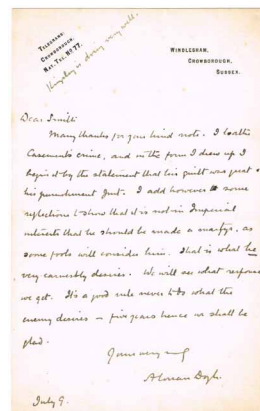 TELEGRAMS:
CROWBOROUGH.
NAT. TEL. No 77.
Kingsley is doing very well.
WINDLESHAM,
CROWBOROUGH,
SUSSEX.
Dear Smith
Many thanks for your kind note. I loathe
Casement's crime, and in the form I drew up I
begin it by the statement that his guilt was great &
his punishment just. I add however some
reflections to show that it is not in Imperial
interests that he should be made a martyr, as
some fools will consider him. That is what he
very earnestly desires. We will see what response
we get. It's a good rule never to do what the
enemy desires – five years hence we shall be
glad.
Yours very truly
A Conan Doyle.
July 9.